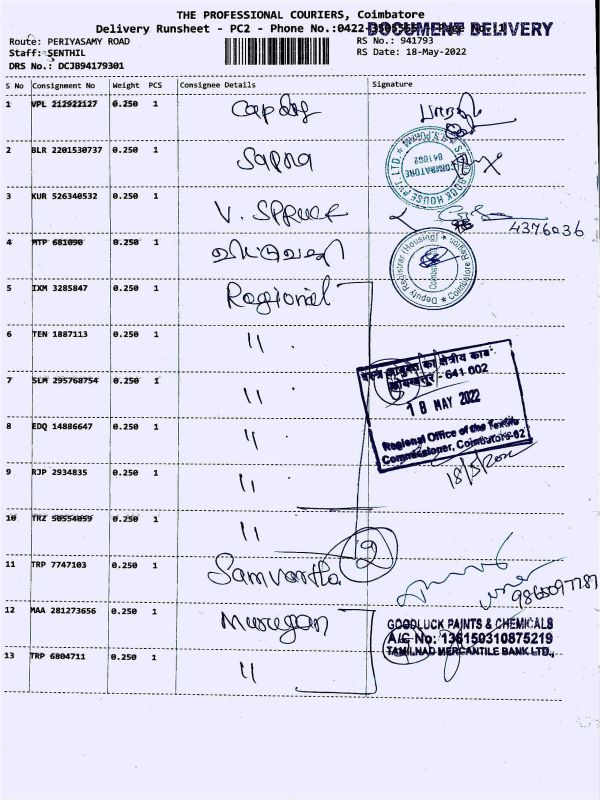 THE PROFESSIONAL COURIERS, Coimbatore
Delivery Runsheet - PC2 - Phone No.:0422-
DOCUMENT DELIVERY
Route: PERIYASAMY ROAD
RS No.: 941793
Staff: SENTHIL
RS Date: 18-May-2022
DRS No.: DCJB94179301
S No Consignment No Weight PCS Consignee Details Signature
1 VPL 212922127 0.250 1
2 BLR 2201530737 0.250 1 Sapna
3 KUR 526340532 0.250 1 V. SPRUCE
4376036
4 MTP 681090 0.250 1
5 IXM 3285847 0.250 1 Regional
6 TEN 1887113 0.250 1 "
7 SLM 295768754 0.250 1 "
8 EDQ 14886647 0.250 1 "
9 RJP 2934835 0.250 1 "
10 TRZ 50554059 0.250 1 "
11 TRP 7747103 0.250 1 Samvartha
12 MAA 281273656 0.250 1 Murugan
13 TRP 6804711 0.250 1 "
COIMBATORE
641062
Deputy Registrar (Housing) ★ Coimbatore Region
का क्षेत्रीय
कोयम्बत्तूर - 641 002
18 MAY 2022
Regional Office of the Textile
Commissioner, Coimbatore-02
18/5/2022
2
GOODLUCK PAINTS & CHEMICALS
A/C No: 136150310875219
TAMILNAD MERCANTILE BANK LTD.,